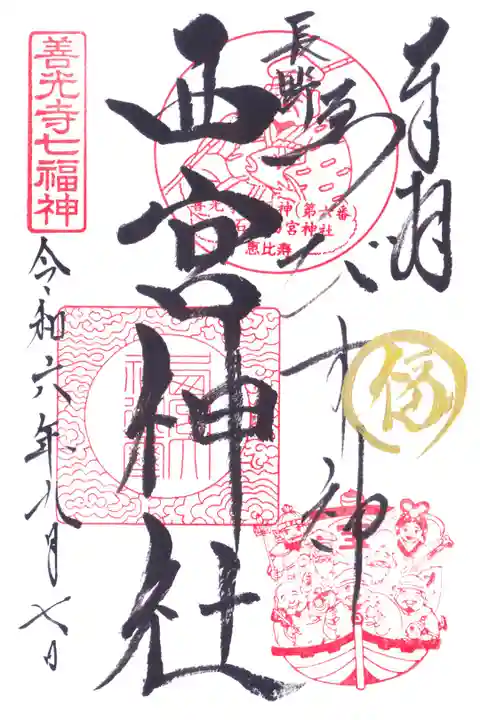 奉拝
長野
ゑびす神
西宮神社
善光寺七福神
令和六年九月七日
神(第六番)
宮神社
恵比寿